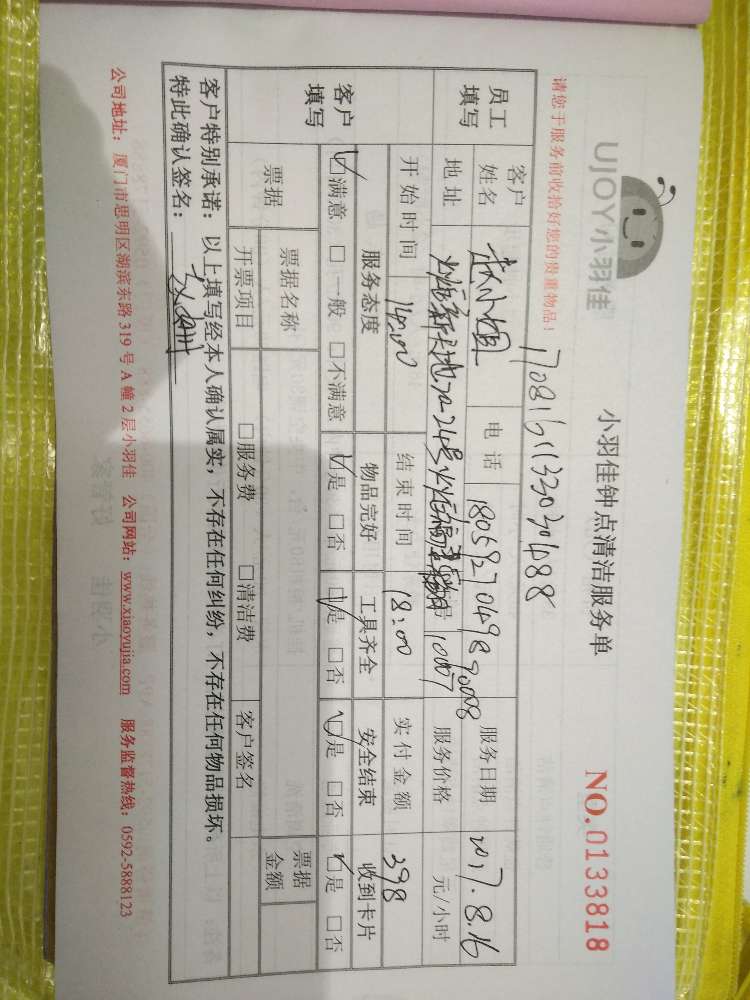 UJOY小羽佳
小羽佳钟点清洁服务单
NO.0133818
请您于服务前收拾好您的贵重物品！
员工填写
客户姓名
赵小姐
电话
服务日期
2017.8.16
地址
服务价格
元/小时
开始时间
14:00
结束时间
18:00
实付金额
398
客户填写
服务态度
物品完好
工具齐全
安全结束
收到卡片
☑满意 □一般 □不满意
☑是 □否
☑是 □否
☑是 □否
☑是 □否
票据
票据名称
票据金额
开票项目
□服务费 □清洁费
客户签名
客户特别承诺：以上填写经本人确认属实，不存在任何纠纷，不存在任何物品损坏。
特此确认签名：
公司地址：厦门市思明区湖滨东路 319 号 A 幢 2 层小羽佳 公司网站：www.xiaoyujia.com 服务监督热线：0592-5888123